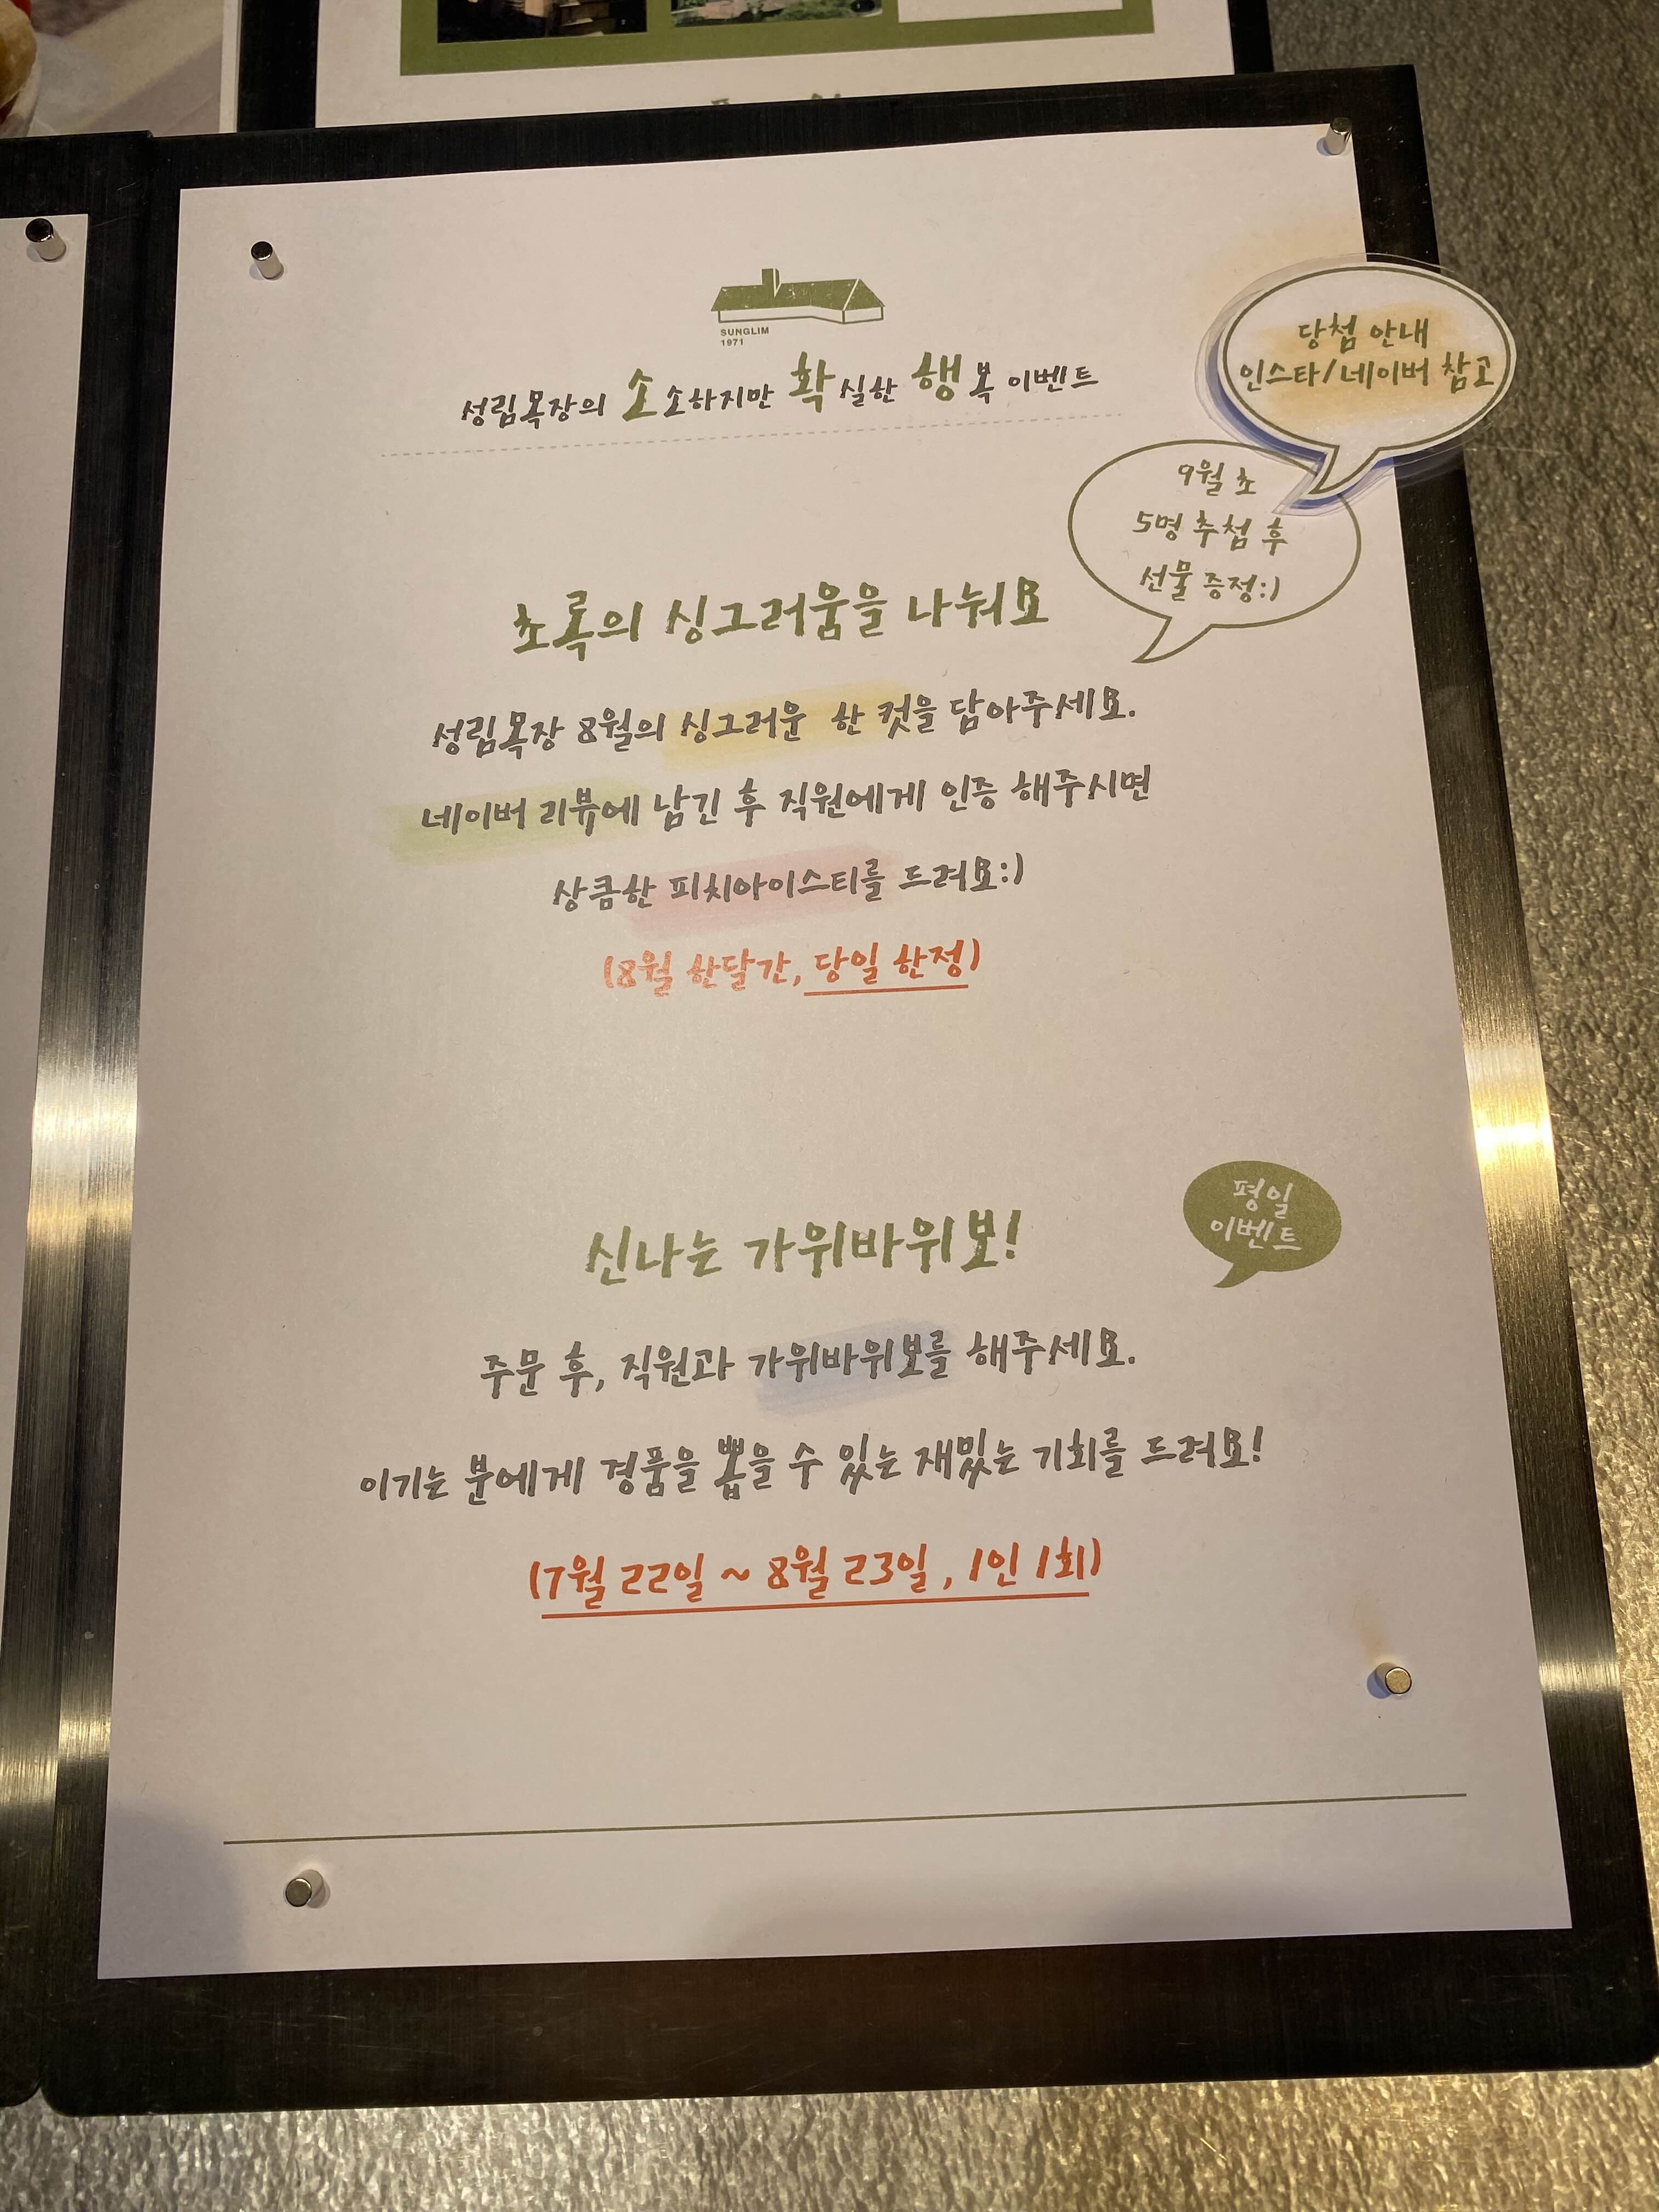 SUNGLIM
1971
성림목장의 소소하지만 확실한 행복 이벤트
당첨 안내
인스타/네이버 참고
9월 초
5명 추첨 후
선물 증정:)
초록의 싱그러움을 나눠요
성림목장 8월의 싱그러운 한 컷을 담아주세요.
네이버 리뷰에 남긴 후 직원에게 인증 해주시면
상큼한 피치아이스티를 드려요:)
(8월 한달간, 당일 한정)
평일
이벤트
신나는 가위바위보!
주문 후, 직원과 가위바위보를 해주세요.
이기는 분에게 경품을 뽑을 수 있는 재밌는 기회를 드려요!
(7월 22일 ~ 8월 23일, 1인 1회)